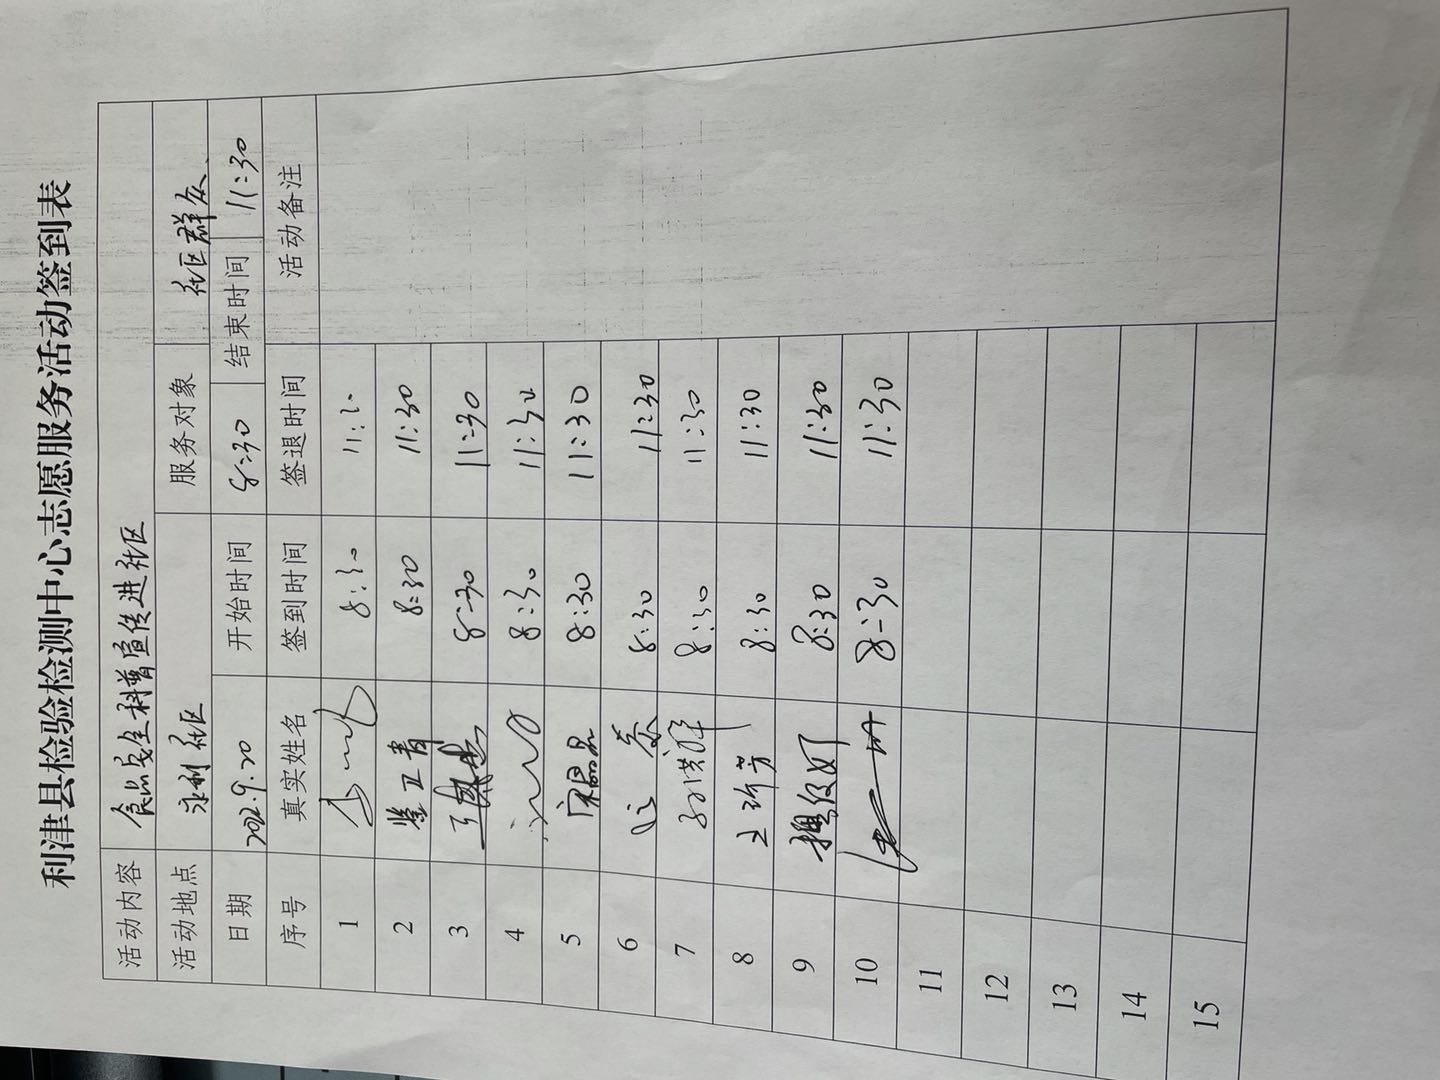 利津县检验检测中心志愿服务活动签到表
活动内容 食品安全科普宣传进社区
活动地点 永利社区 服务对象 社区群众
日期 2022.9.20 开始时间 8:30 结束时间 11:30
序号 真实姓名 签到时间 签退时间 活动备注
1 8:30 11:30
2 8:30 11:30
3 8:30 11:30
4 8:30 11:30
5 8:30 11:30
6 8:30 11:30
7 8:30 11:30
8 8:30 11:30
9 8:30 11:30
10 8:30 11:30
11
12
13
14
15